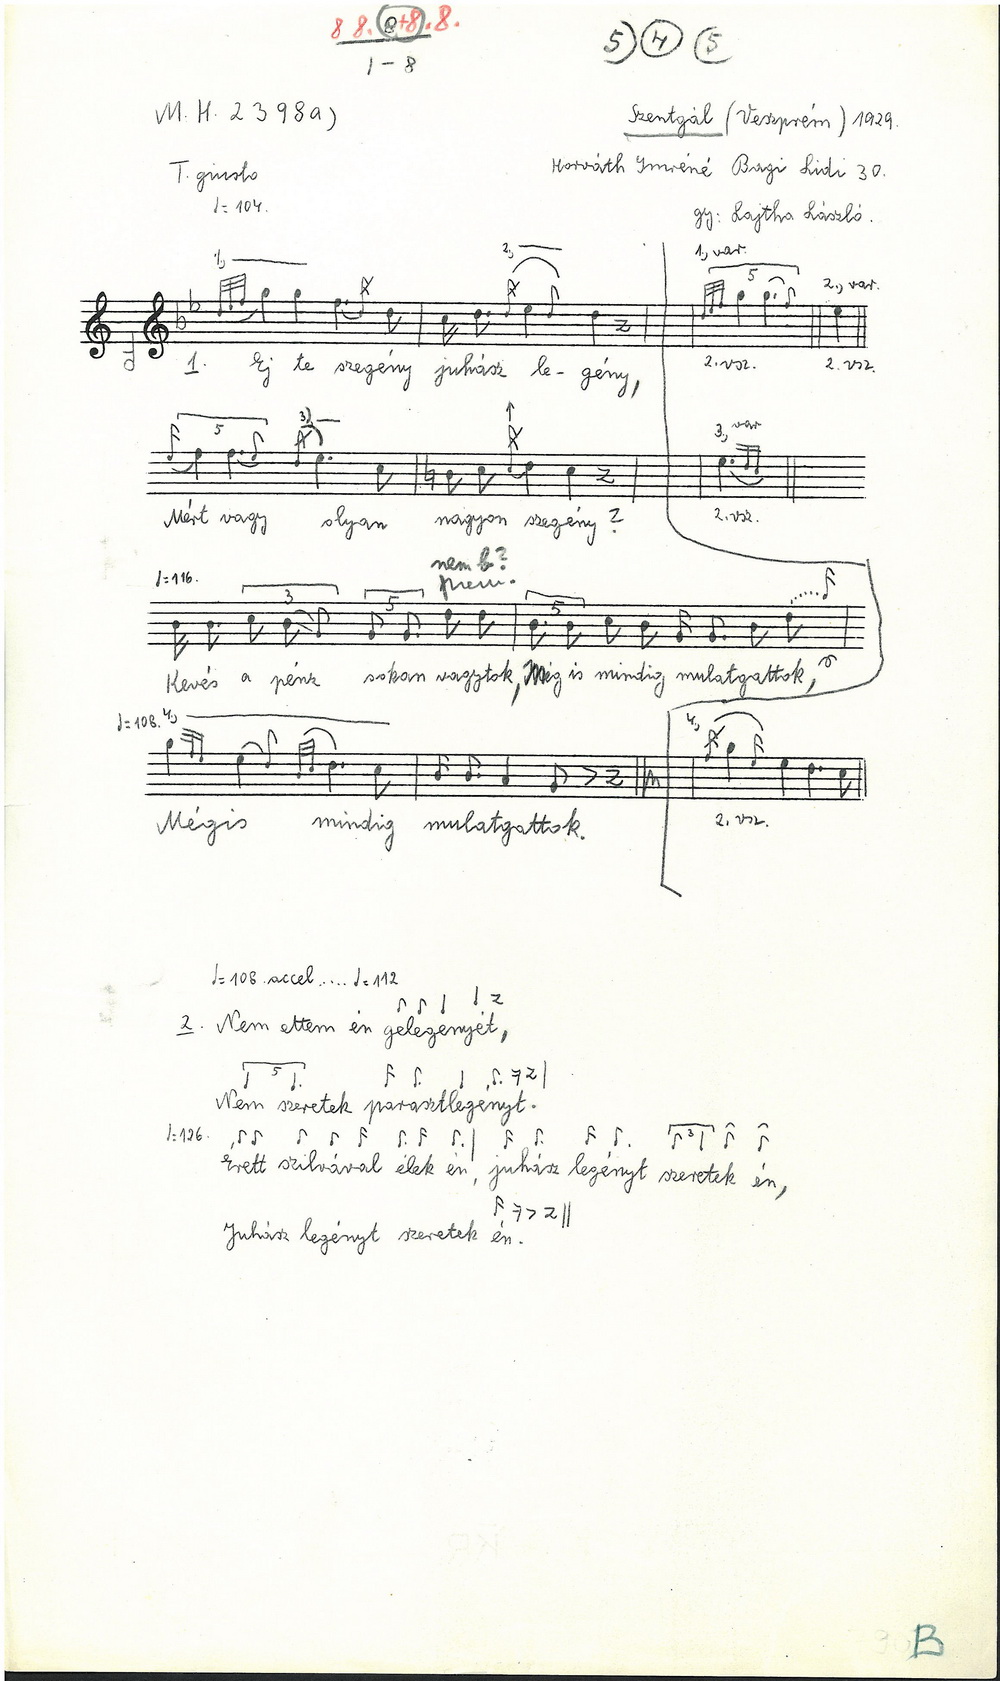 8 8. 8+8. 8.
1-8
5) 4 (5
M. H. 2398a)
Szentgál (Veszprém) 1929.
T. giusto
Horváth Imréné Bagi Lidi 30.
♩=104.
gy: Lajtha László.
1,
2,
1, var.
5
2, var.
1. Ej te szegény juhász le- gény,
2. vsz.
2. vsz.
5
3)
3, var
Mért vagy olyan nagyon szegény?
2. vsz.
nem b?
♩=116.
3
5
5
Kevés a pénz sokan vagytok, Még is mindig mulatgattok,
♩=108. 4,
4,
Mégis mindig mulatgattok.
2. vsz.
♩=108 accel.... ♩=112
2. Nem ettem én gelegenyét,
5
Nem szeretek parasztlegényt.
♩=126.
3
Erett szilvával élek én, juhász legényt szeretek én,
Juhász legényt szeretek én.
B